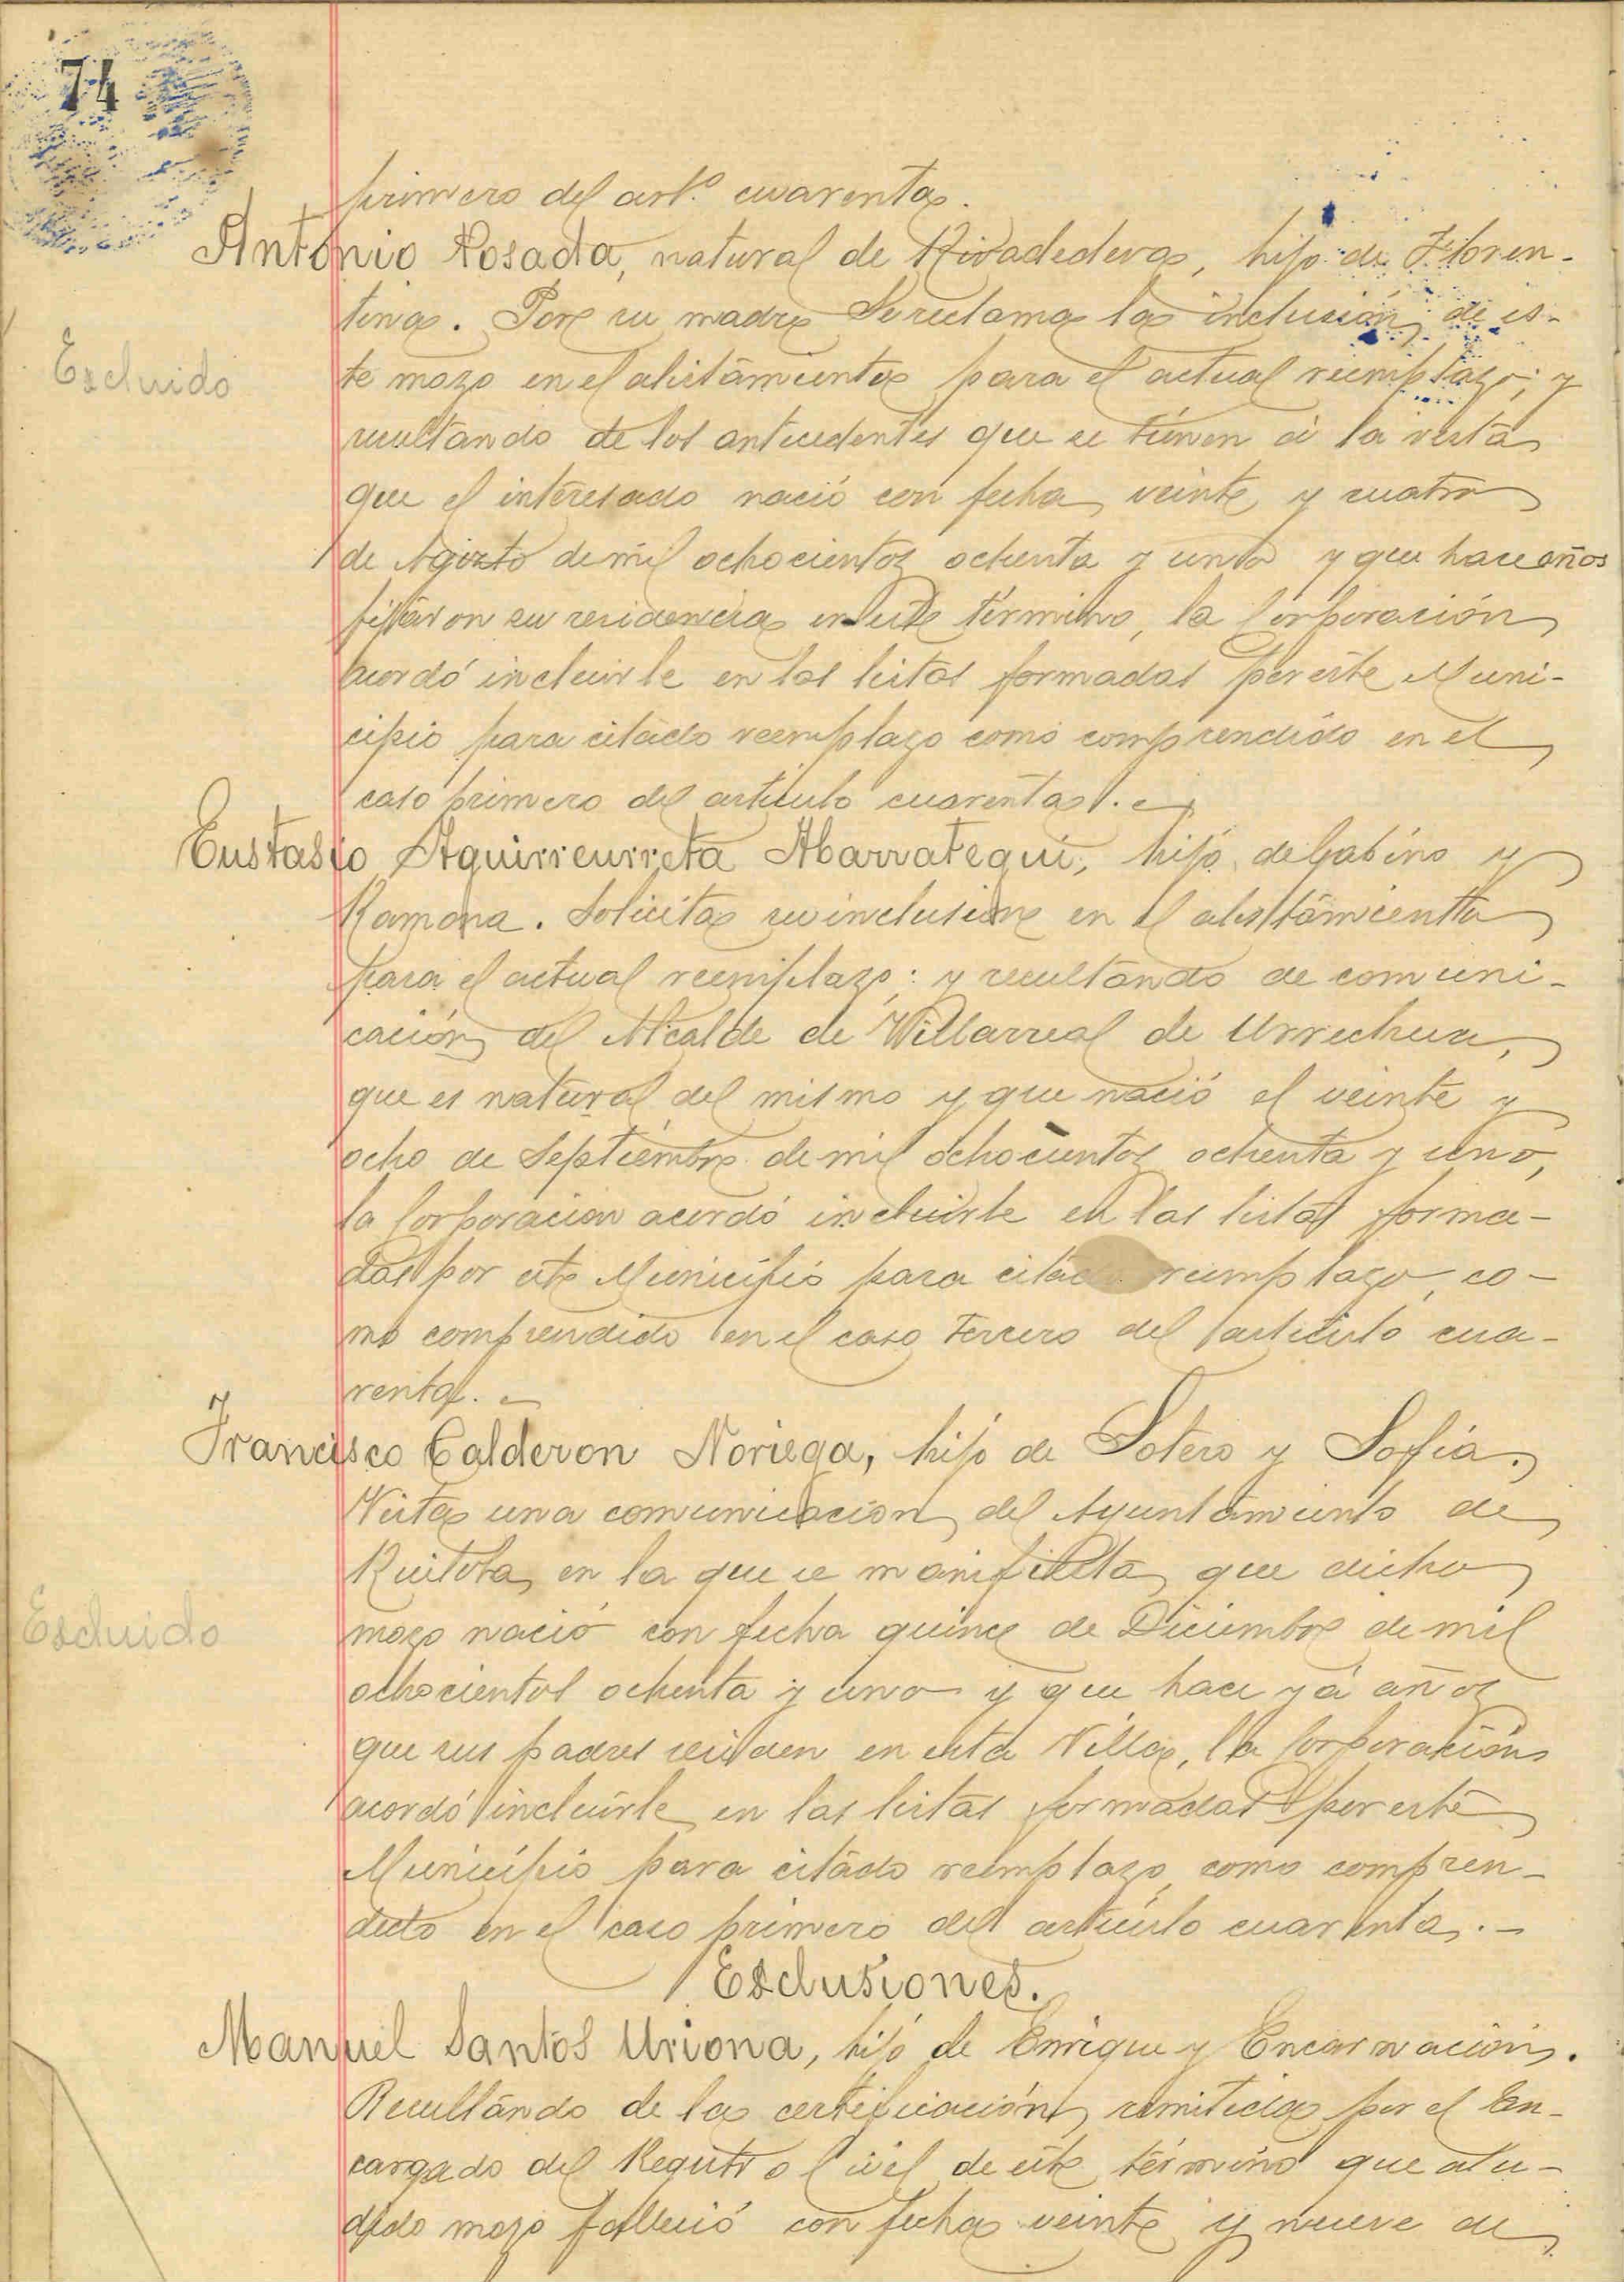 74
primero del artº. cuarenta.
Antonio Posada, natural de Rivadedeva, hijo de Floren-
tina. Por su madre se reclama la inclusión de es-
Excluido
te mozo en el alistamiento para el actual reemplazo; y
resultando de los antecedentes que se tienen á la vista
que el interesado nació con fecha veinte y cuatro
de Agosto de mil ochocientos ochenta y uno y que hace años
fijaron su residencia en este término, la Corporación
acordó incluirle en las listas formadas por este Muni-
cipio para citado reemplazo como comprendido en el
caso primero del artículo cuarenta.
Eustasio Aguirreurreta Abarrategui, hijo de Gabino y
Ramona. Solicita su inclusion en el alistamiento
para el actual reemplazo; y resultando de comuni-
cación del Alcalde de Villarreal de Urrechua,
que es natural del mismo y que nació el veinte y
ocho de Septiembre de mil ochocientos ochenta y uno,
la Corporación acordó incluirle en las listas forma-
das por este Municipio para citado reemplazo, co-
mo comprendido en el caso tercero del artículo cua-
renta.
Francisco Calderon Noriega, hijo de Sotero y Sofía.
Vista una comunicación del Ayuntamiento de
en la que se manifiesta que dicho
Escluido
mozo nació con fecha quince de Diciembre de mil
ochocientos ochenta y uno y que hace yá años
que sus padres residen en esta Villa, la Corporación
acordó incluirle en las listas formadas por este
Municipio para citado reemplazo como compren-
dido en el caso primero del artículo cuarenta.
Esclusiones.
Manuel Santos Uriona, hijo de Enrique y Encarnación.
Resultando de la certificación remitida por el En-
cargado del Registro Civil de este término que alu-
dido mozo falleció con fecha veinte y nueve de